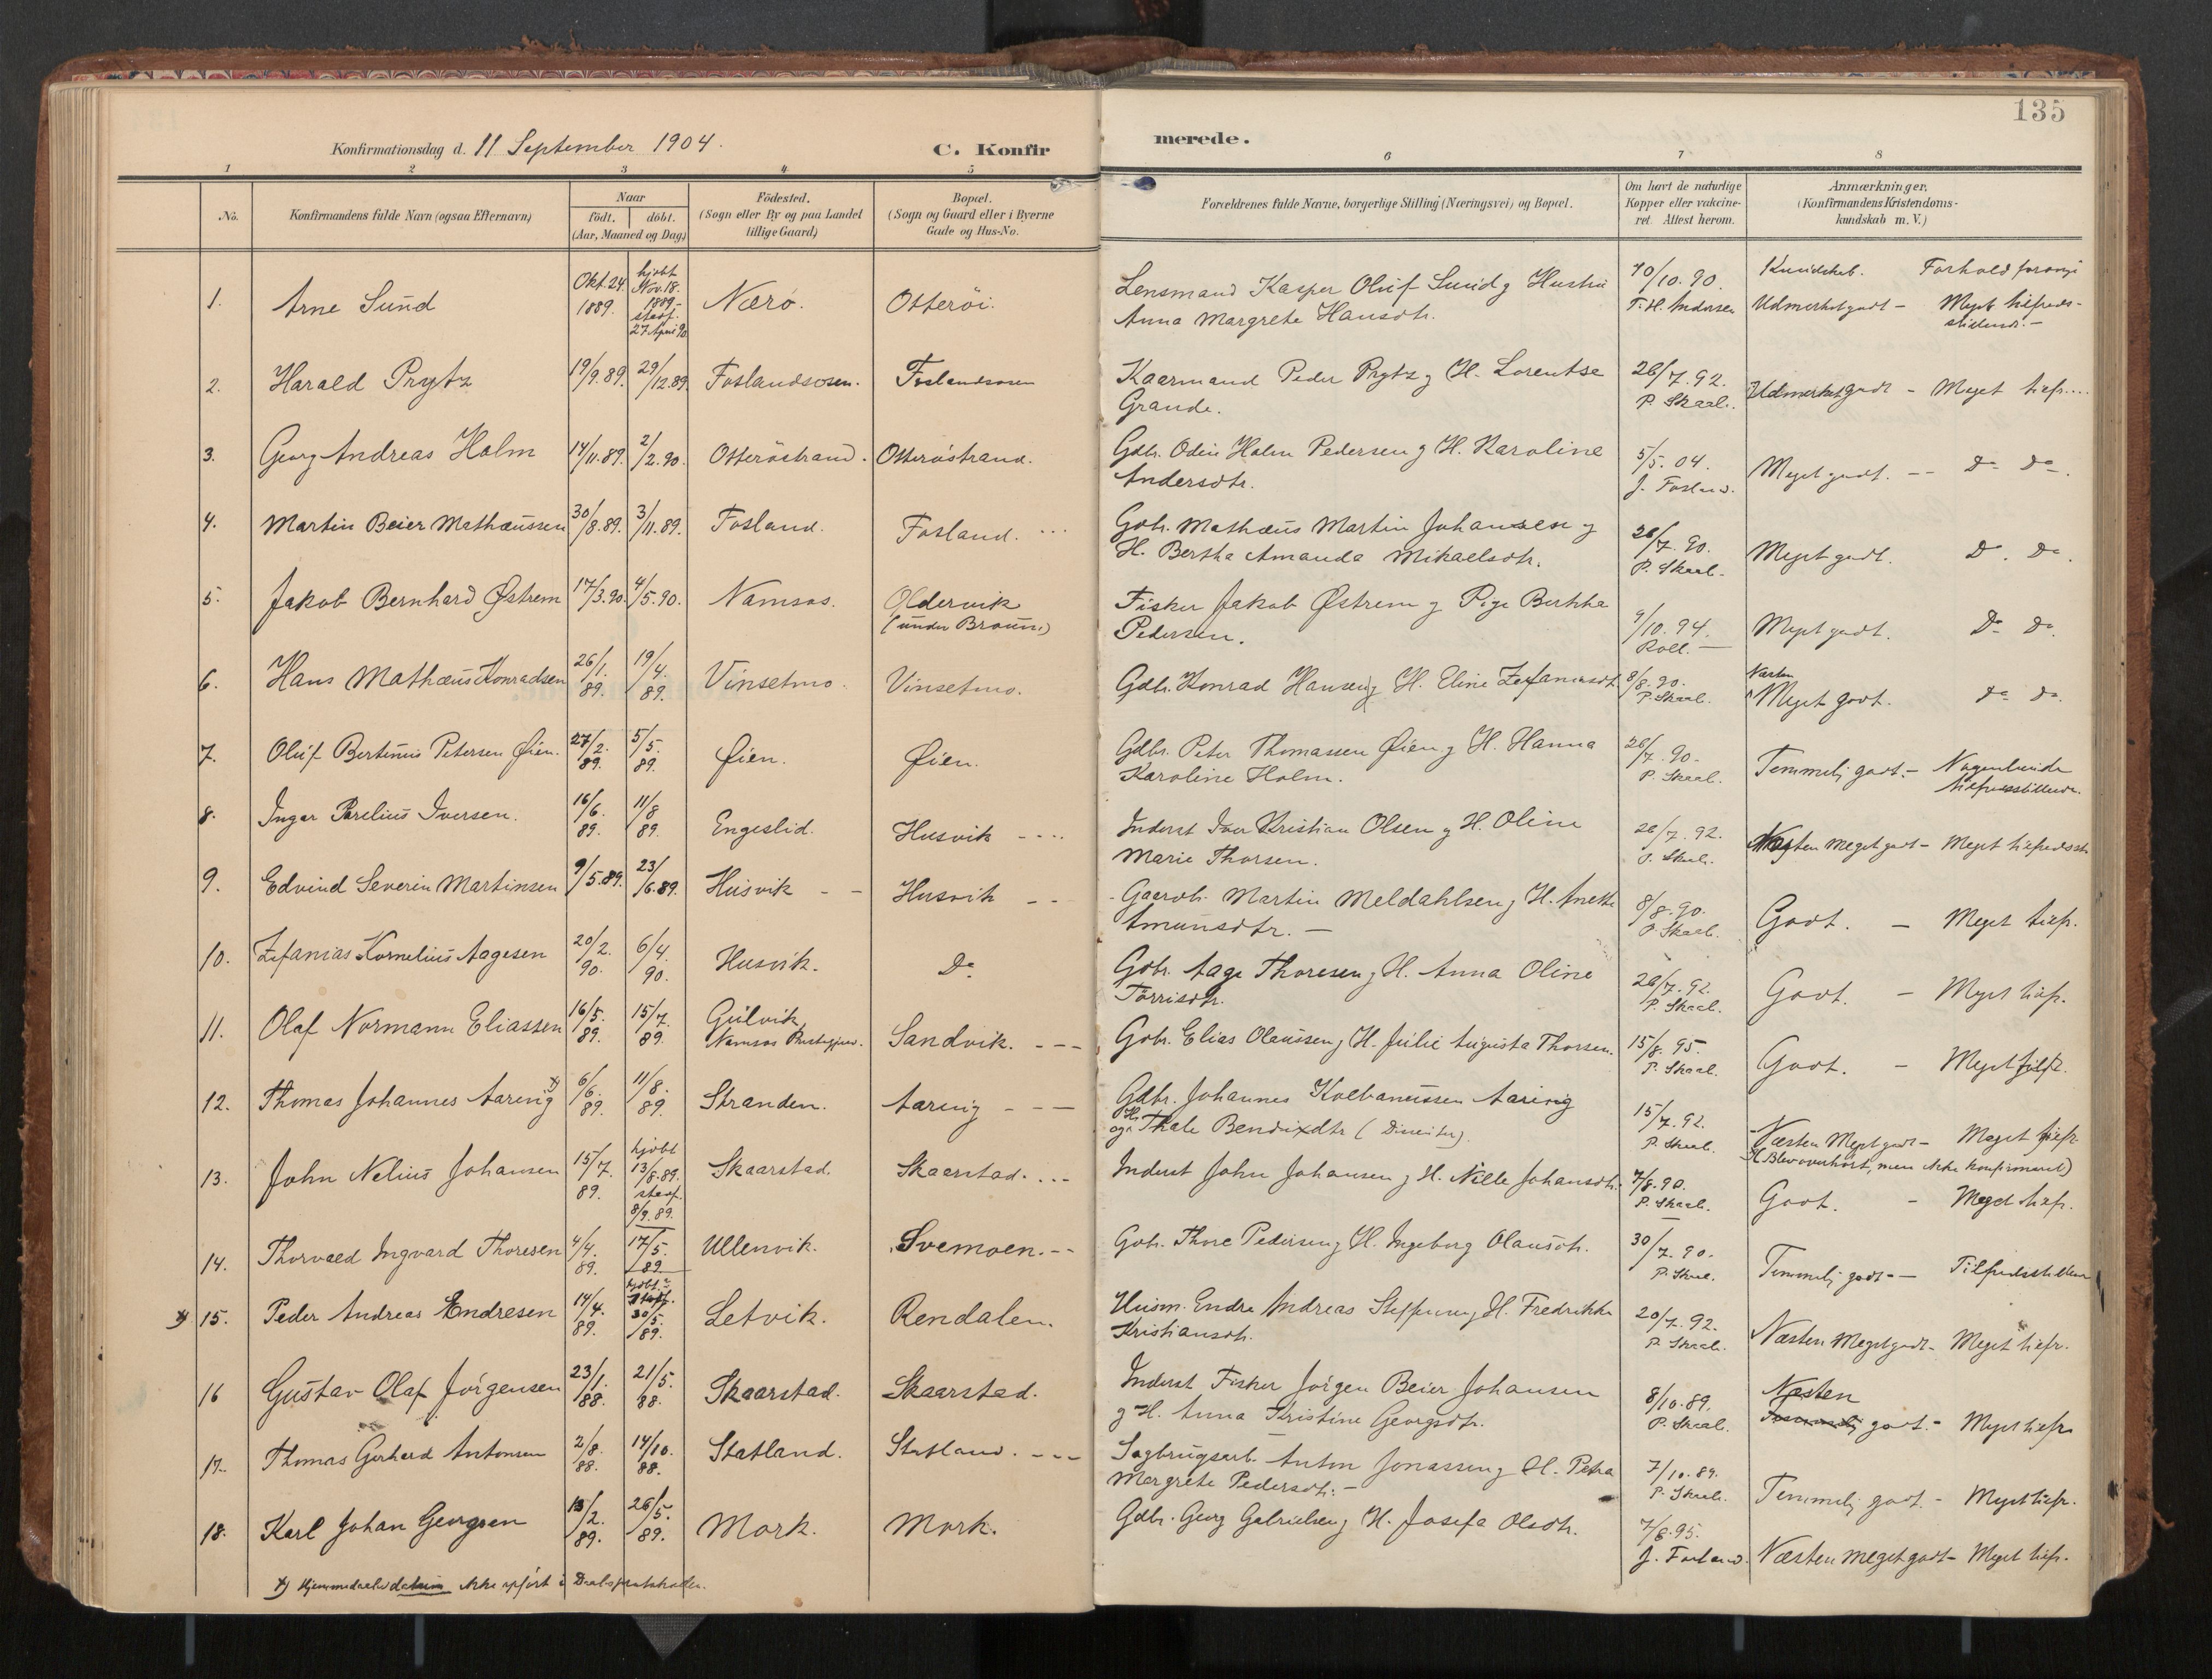 135
Konfirmationsdag d. 11 September 1904.
C. Konfir
merede.
1 2 3 4 5 6 7 8
No.
Konfirmandens fulde Navn (ogsaa Efternavn)
Naar
födt. döbt.
(Aar, Maaned og Dag)
Födested.
(Sogn eller By og paa Landet
tillige Gaard)
Bopæl.
(Sogn og Gaard eller i Byerne
Gade og Hus-No.
Forældrenes fulde Navne, borgerlige Stilling (Næringsvei) og Bopæl.
Om havt de naturlige
Kopper eller vakcine-
ret. Attest herom.
Anmærkninger.
(Konfirmandens Kristendoms-
kundskab m. V.)
Kundskab. Forhold forøvr.
1. Arne Sund Okt. 24. 1889. hjdbt Nov. 18. 1889- stadf. 27 April 90 Nærö. Otteröi. Lensmand Kasper Oluf Sund g Hustru
Anna Margrete Hansdtr. 10/10.90. T. H. Andersen Udmerket godt - Meget tilfreds-
stillende. -
2. Harald Prytz 19/9.89. 29/12.89. Foslandsosen. Foslandsosen Kaarmand Peder Prytz g H. Lorentse
Grande. 26/7.92. P. Skaal. Udmerket godt - Meget tilfr....
3. Georg Andreas Holm 14/11.89. 2/2.90. Otteröstrand. Otteröstrand. Gdbr. Odin Holm Pedersen g H. Karoline
Andersdtr. 5/5.04. J. Fosland. Meget godt. -- Do Do.
4. Martin Beier Mathæussen 30/8.89. 3/11.89. Fosland. Fosland. ... Gdbr. Mathæus Martin Johansen g
H. Bertha Amanda Mikaelsdtr. 26/7.90. P. Skaal. Meget godt. Do. Do.
5. Jakob Bernhard Østrem 17/3.90. 4/5.90. Namsos. Oldervik
(under Braun.) Fisker Jakob Østrem g Pige Berthe
Pedersen. 9/10.94. Roll. - Meget godt. Do Do.
6. Hans Mathæus Konradsen 26/1.89. 19/4.89. Vinsetmo. Vinsetmo. Gdbr. Konrad Hansen g H. Eline Zefaniasdt. 8/8.90. P. Skaal. Næsten
Meget godt. Do Do.
7. Oluf Bertinus Petersen Øien. 27/2.89. 5/5.89. Øien. Øien. Gdbr. Peter Thomassen Øien g H. Hanna
Karoline Holm. 26/7.90. P. Skaal. Temmelig godt. - Nogenlunde
tilfredsstillende.
8. Ingar Parelius Iversen. 16/6.89. 11/8.89. Engeslid. Husvik .... Inderst Iver Kristian Olsen g H. Oline
Marie Thorsen. 26/7.92. P. Skaal. Næsten meget godt - Meget tilfredsst.
9. Edvind Severin Martinsen 9/5.89. 23/6.89. Husvik - - Husvik - - Gaardbr. Martin Meldahlsen g H. Anette
Amunsdtr. - 8/8.90. P. Skaal. Godt. - Meget tilfr.
10. Zefanias Kornelius Aagesen 20/2.90. 6/4.90. Husvik. Do Gdbr. Aage Thoresen g H. Anna Oline
Torrisdtr. 26/7.92. P. Skaal. Godt. - Meget tilfr.
11. Olaf Normann Eliassen 16/5.89. 15/7.89. Gulvik
Namsos Prestegjæld. Sandvik. --- Gdbr. Elias Olaussen g H. Julie Augusta Thorsen. 15/8.95. P. Skaal. Godt. - Meget tilfr.
12. Thomas Johannes Aaring x) 6/6.89. 11/8.89. Stranden. Aaring --- Gdbr. Johannes Kolbanussen Aaring
og H. Thale Bendixdtr ( Dissenter). 15/7.92. P. Skaal. Næsten Meget godt - Meget tilfr.
x) Blev overhört, men ikke konfirmeret)
13. John Nelius Johansen 15/7.89. hjdbt 13/8.89. stadf. 8/9.89. Skaarstad. Skaarstad. ... Inderst John Johansen g H. Nille Johansdtr. 7/8.90. P. Skaal. Godt. - Meget tilfr.
14. Thorvald Ingvard Thoresen 4/4.89. 17/5.89. Ullenvik. Svemoen. -- Gdbr. Thore Pedersen g H. Ingeborg Olausdtr. 30/7.90. P. Skaal. Temmelig godt. - Tilfredsstillen
x) 15. Peder Andreas Endresen 14/4.89. hjdbt. stadf. 30/5.89. Letvik. Rendalen. Husm. Endre Andreas Steffensen g H. Fredrikke
Kristiansdtr. 20/7.92. P. Skaal. Næsten Meget godt - Meget tilfr.
16 Gustav Olaf Jörgensen 23/1.88. 21/5.88. Skaarstad. Skaarstad. Inderst Fisker Jörgen Beier Johansen
g H. Anna Kristine Georgsdtr. 8/10.89. P. Skaal. Næsten
Temmelig godt. - Meget tilfr.
17. Thomas Gerhard Antonsen 2/8.88. 14/10.88. Statland. Statland. --- Sagbrugsarb. Anton Jonassen g H. Petra
Margrete Pedersdtr. - 7/10.89. P. Skaal. Temmelig godt. - Meget tilfr.
18. Karl Johan Georgsen 13/2.89. 26/5.89. Mork. Mork. Gdbr. Georg Gabrielsen g H. Josefa Olsdtr. 7/8.95. J. Fosland. Næsten meget godt - Meget tilfr.
x) Hjemmedaabsdatum ikke opfört i Daabsprotokollen.